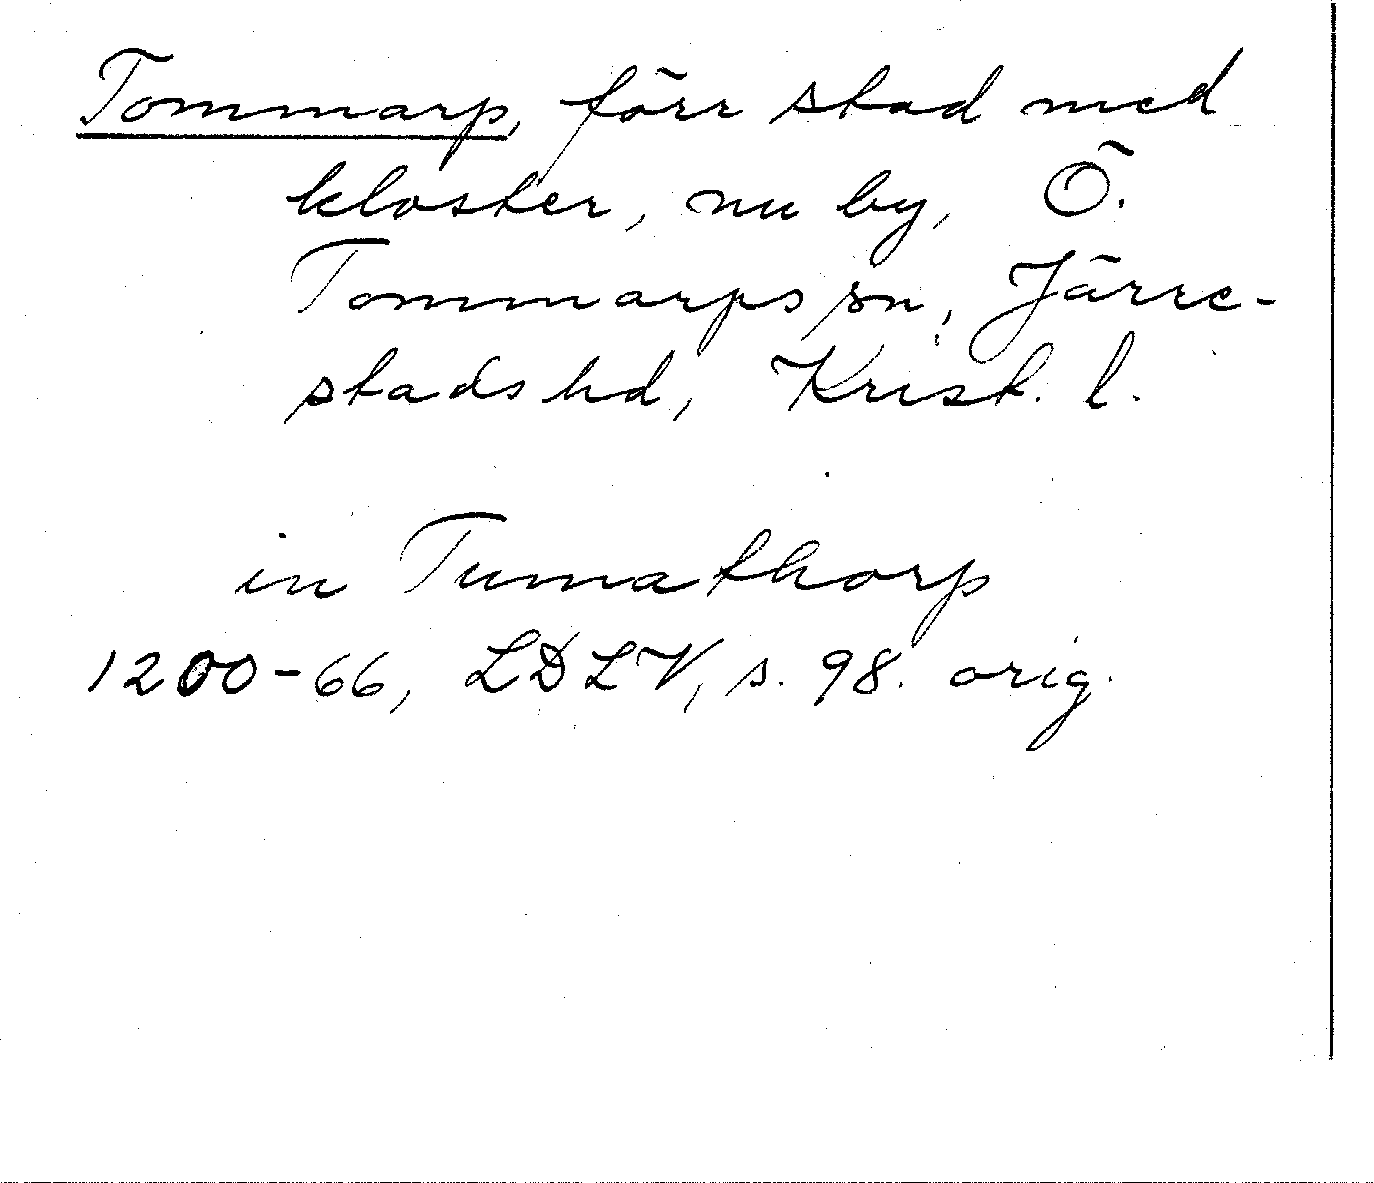 Tommarp, förr stad med
kloster, nu by, Ö.
Tommarps sn, Järre-
stads hd, Krist. l.
in Tumathorp
1200-66, LDLV, s. 98. orig.